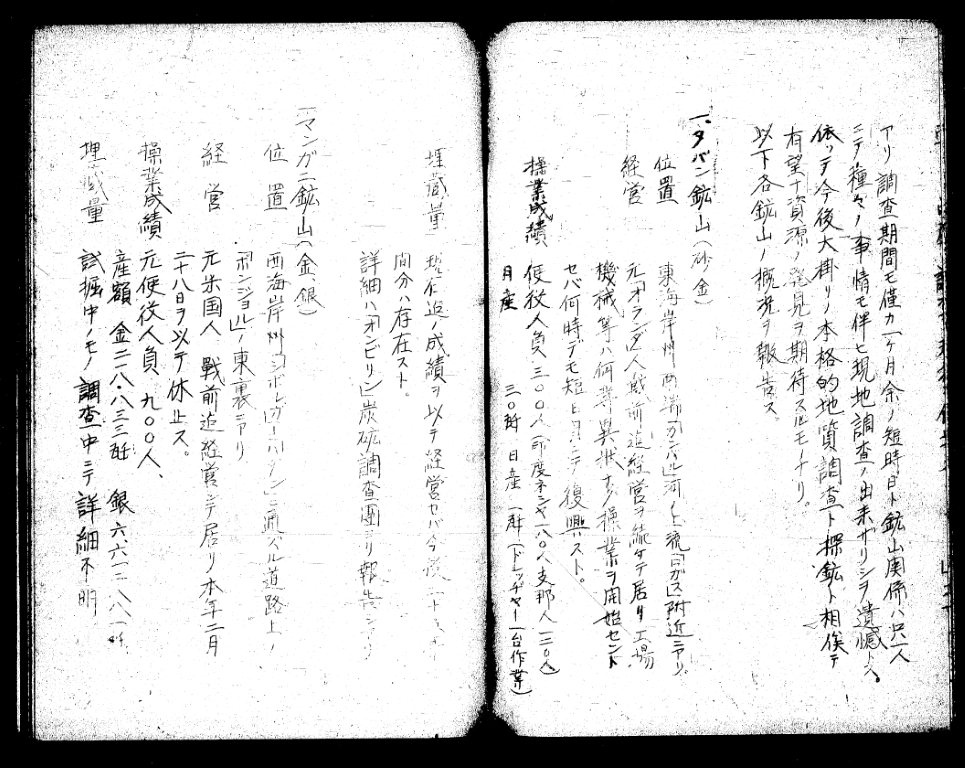 アリ調査期間モ僅カ一ヶ月余ノ短時日ト鉱山関係ハ只一人
ニテ種々ノ事情モ伴ヒ現地調査ノ出来ザリシヲ遺憾トス。
依ッテ今後大掛リノ本格的地質調査ト探鉱ト相俟テ
有望ナ資源ノ発見ヲ期待スルモノナリ。
以下各鉱山ノ概況ヲ報告ス。
一、タバン鉱山（砂金）
位置 東海岸州西端 河ノ上流 附近ニアリ
経営 元「オランダ」人戦前迄経営ヲ続ケテ居リ工場
機械等ハ何等異状ナク操業ヲ開始セント
セバ何時デモ短日月ニテ復興スト。
操業成績 使役人員三〇〇人 印度ネシヤ一八〇人 支那人一二〇人
月産 三〇瓩 日産 一瓩（ドレッヂャー一台作業）
埋蔵量 迄ノ成績ヲ以テ経営セバ今後
間分ハ存在スト。
詳細ハ「オンビリン」炭砿調査團ヨリ報告シアリ
一、マンガニ鉱山（金、銀）
位置 西海岸州 ニ通ズル道路上ノ
「ボンジョル」ノ東裏ニアリ
経営 元米国人戦前迄経営シテ居リ本年二月
二十八日ヲ以テ休止ス。
操業成績 元使役人員 九〇〇人、
産額 金二二八・八三三瓩 銀六、六一二・八八一瓩
埋蔵量 試掘中ノモノ調査中ニテ詳細不明